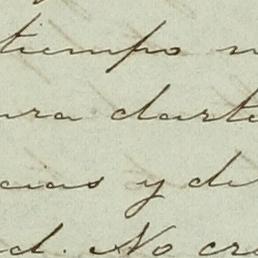 tiempo
ura darte
cias y de
d. No cre